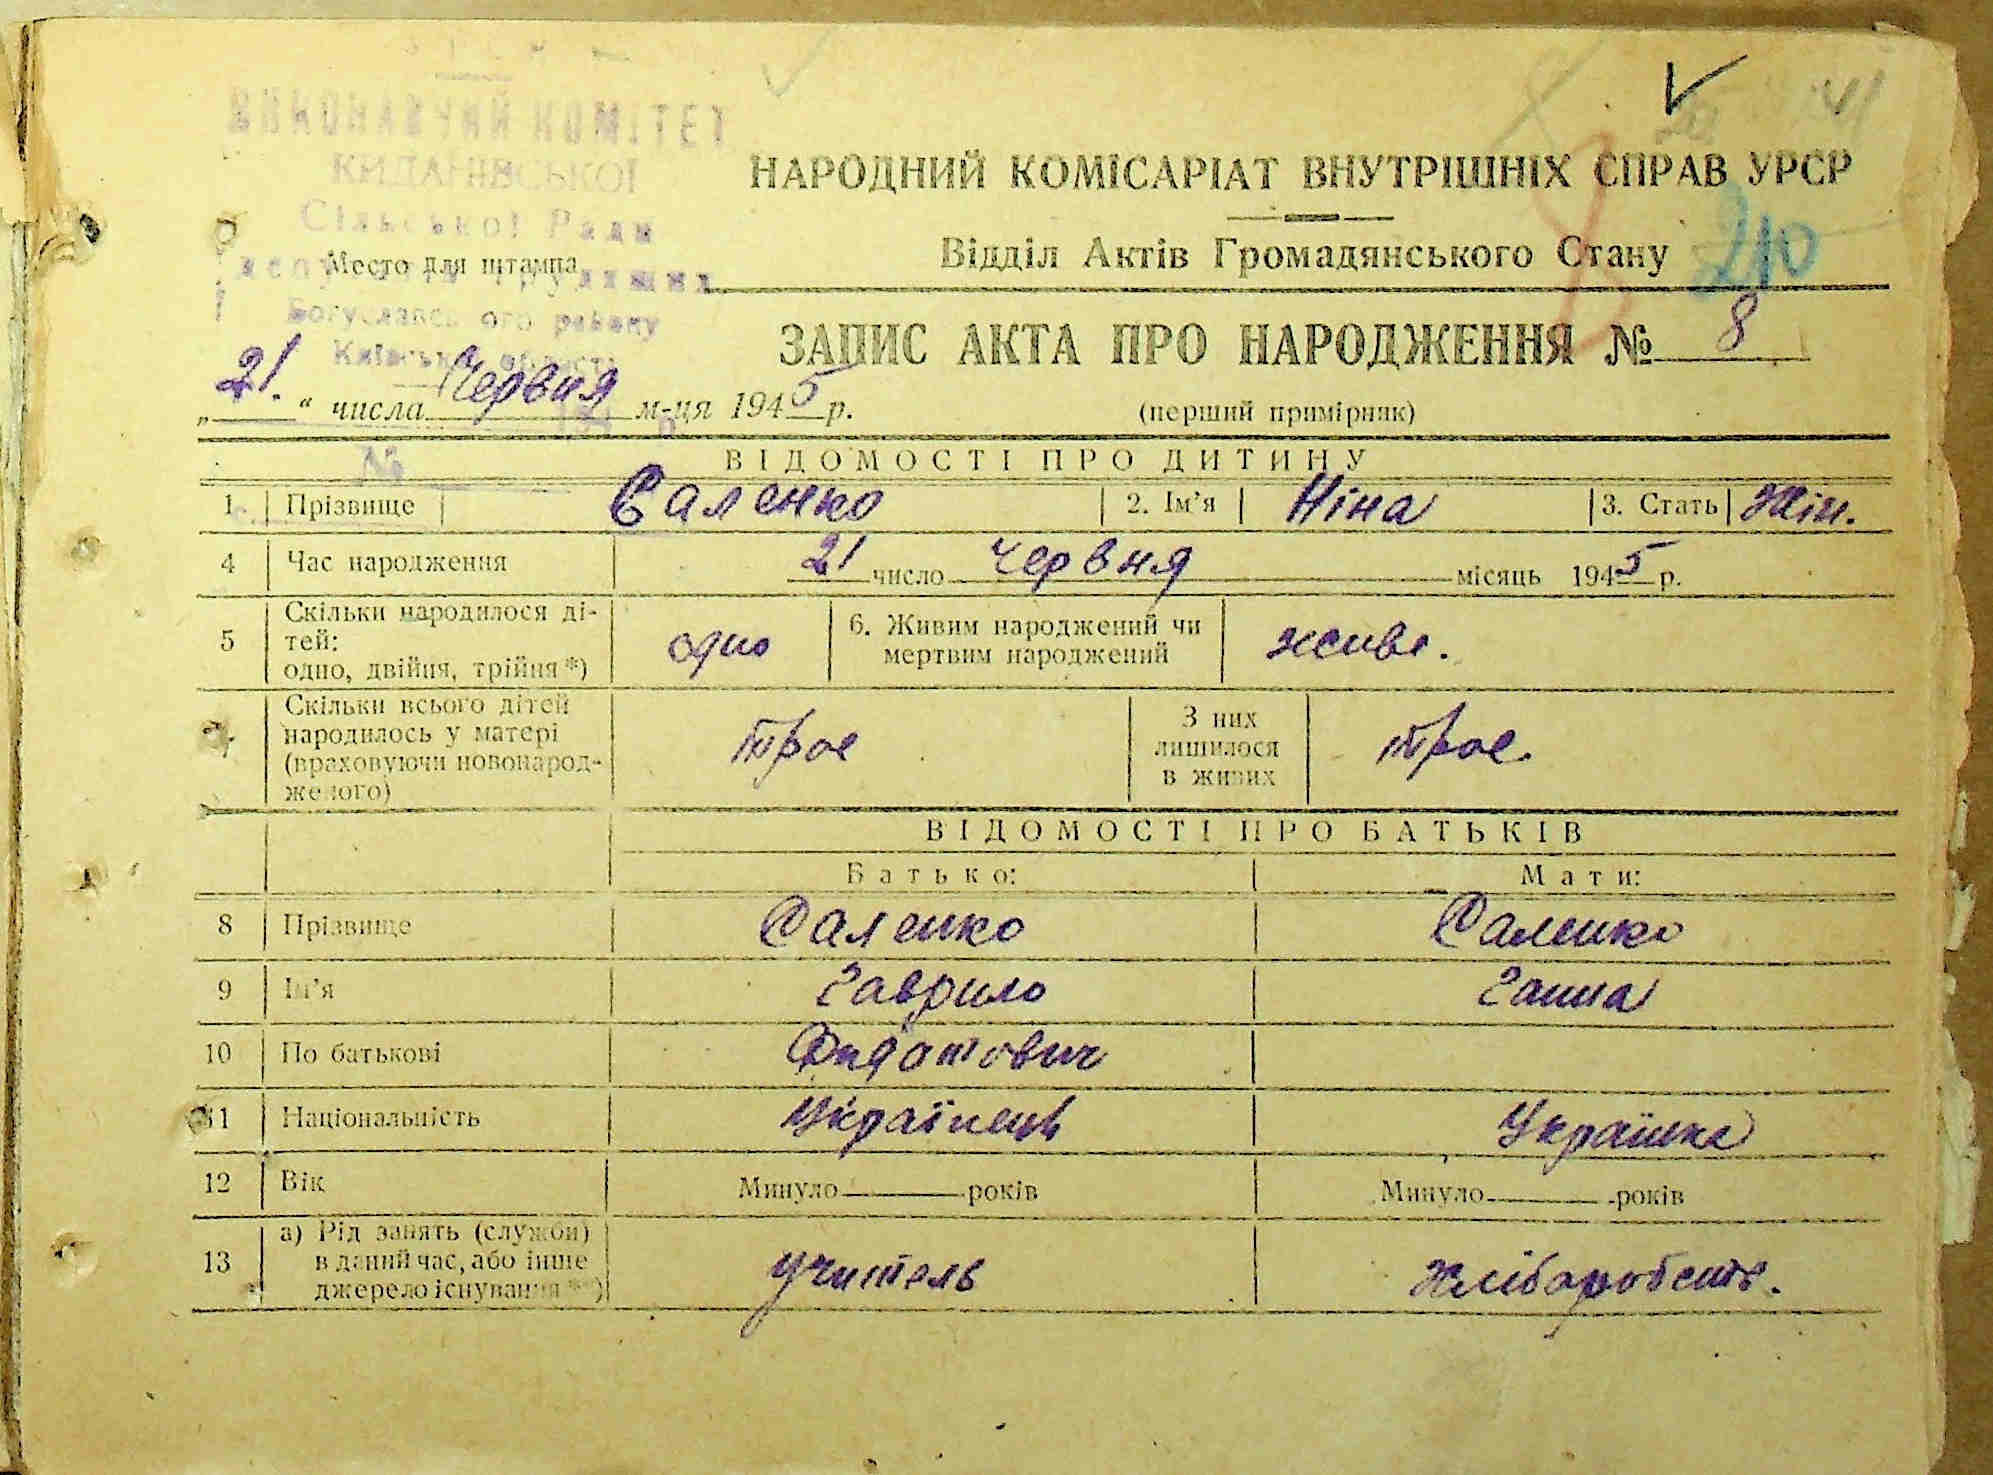 ВИКОНАВЧИЙ КОМІТЕТ
КИДАНІВСЬКОЇ
Сільської Ради
Богуславського району
Київської області
Место для штампа
№
НАРОДНИЙ КОМІСАРІАТ ВНУТРІШНІХ СПРАВ УРСР
Відділ Актів Громадянського Стану
210
ЗАПИС АКТА ПРО НАРОДЖЕННЯ № 8
„21.“ числа Червня м-ця 1945 р.
(перший примірник)
ВІДОМОСТІ ПРО ДИТИНУ
1. Прізвище Саленко 2. Ім’я Ніна 3. Стать Жін.
4 Час народження 21 число Червня місяць 1945 р.
5 Скільки народилося ді-
тей:
одно, двійня, трійня *) одно 6. Живим народжений чи
мертвим народжений живе.
7 Скільки всього дітей
народилось у матері
(враховуючи новонарод-
женого) троє З них
лишилося
в живих троє.
ВІДОМОСТІ ПРО БАТЬКІВ
Батько: Мати:
8 Прізвище Саленко Саленко
9 Ім’я Гаврило Ганна
10 По батькові
11 Національність Українець Українка
12 Вік Минуло років Минуло років
13 а) Рід занять (служби)
в даний час, або інше
джерело існування **) учитель хліборобств.